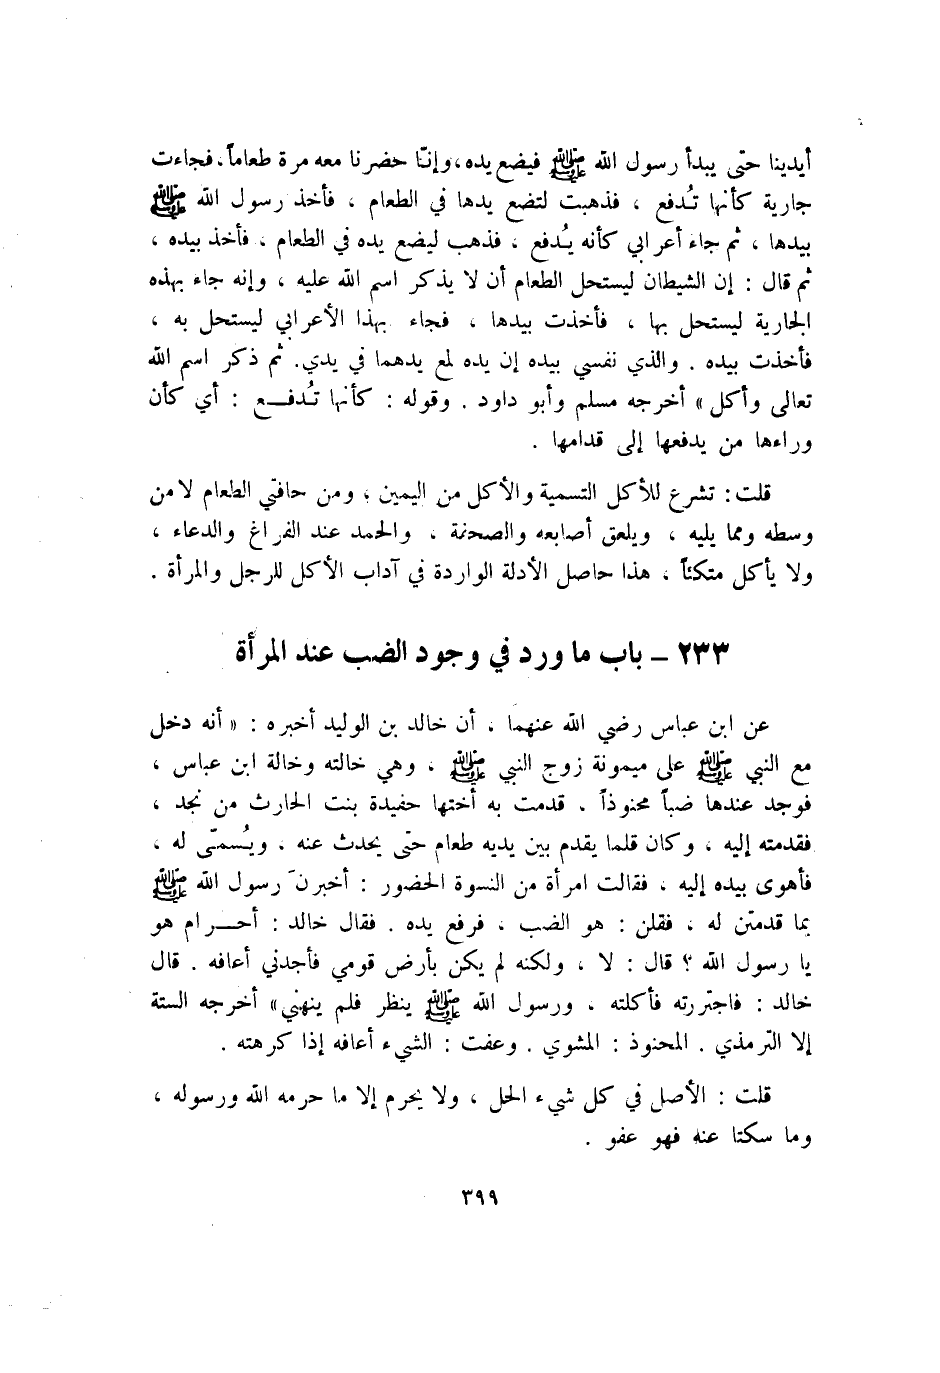 أيدينا حتى يبدأ رسول الله ﷺ فيضع يده ، وإنّا حضرنا معه مرة طعاماً ، فجاءت
جارية كأنها تُدفع ، فذهبت لتضع يدها في الطعام ، فأخذ رسول الله ﷺ
بيدها ، ثم جاء أعرابي كأنه يُدفع ، فذهب ليضع يده في الطعام ، فأخذ بيده ،
ثم قال : إن الشيطان ليستحل الطعام أن لا يذكر اسم الله عليه ، وإنه جاء بهذه
الجارية ليستحل بها ، فأخذت بيدها ، فجاء بهذا الأعرابي ليستحل به ،
فأخذت بيده . والذي نفسي بيده إن يده لمع يدهما في يدي. ثم ذكر اسم الله
تعالى وأكل » أخرجه مسلم وأبو داود . وقوله : كأنها تُدفـع : أي كأن
وراءها من يدفعها إلى قدامها .
قلت : تشرع للأكل التسمية والأكل من اليمين ، ومن حافتي الطعام لا من
وسطه ومما يليه ، ويلعق أصابعه والصحنة ، والحمد عند الفراغ والدعاء ،
ولا يأكل متكئاً ، هذا حاصل الأدلة الواردة في آداب الأكل للرجل والمرأة .
٢٣٣ – باب ما ورد في وجود الضب عند المرأة
عن ابن عباس رضي الله عنهما ، أن خالد بن الوليد أخبره : « أنه دخل
مع النبي ﷺ على ميمونة زوج النبي ﷺ ، وهي خالته وخالة ابن عباس ،
فوجد عندها ضباً محنوذاً . قدمت به أختها حفيدة بنت الحارث من نجد ،
فقدمته إليه ، وكان قلما يقدم بين يديه طعام حتى يحدث عنه ، ويُسمّى له ،
فأهوى بيده إليه ، فقالت امرأة من النسوة الحضور : أخبرنَ رسول الله ﷺ
بما قدمتن له ، فقلن : هو الضب ، فرفع يده . فقال خالد : أحـرام هو
يا رسول الله ؟ قال : لا ، ولكنه لم يكن بأرض قومي فأجدني أعافه . قال
خالد : فاجتررته فأكلته ، ورسول الله ﷺ ينظر فلم ينهني» أخرجه الستة
إلا الترمذي . المحنوذ : المشوي . وعفت : الشيء أعافه إذا كرهته .
قلت : الأصل في كل شيء الحل ، ولا يحرم إلا ما حرمه الله ورسوله ،
وما سكتا عنه فهو عفو .
٣٩٩